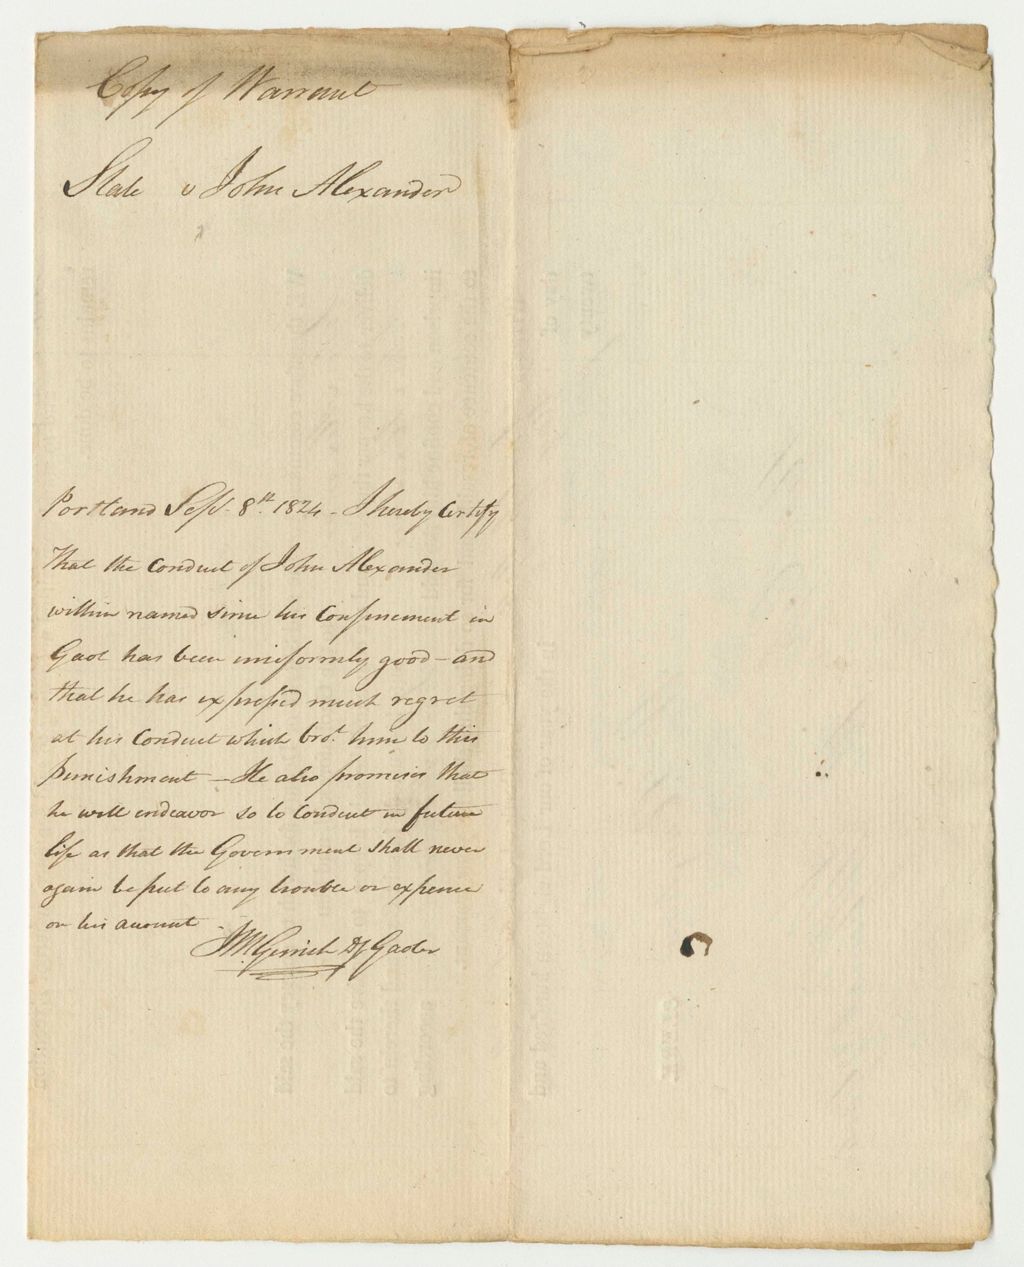 Copy of Warrant
State v John Alexander
Portland Sept. 8th. 1824 - I hereby Certify
that the Conduct of John Alexander
within named since his Confinement in
Gaol has been uniformly good - and
that he has expressed much regret
at his Conduct which bro.t him to this
punishment - He also promises that
he will endeavor so to Conduct in future
life as that the Government shall never
again be put to any trouble or expense
on his account
Gerrish Dy Gaoler